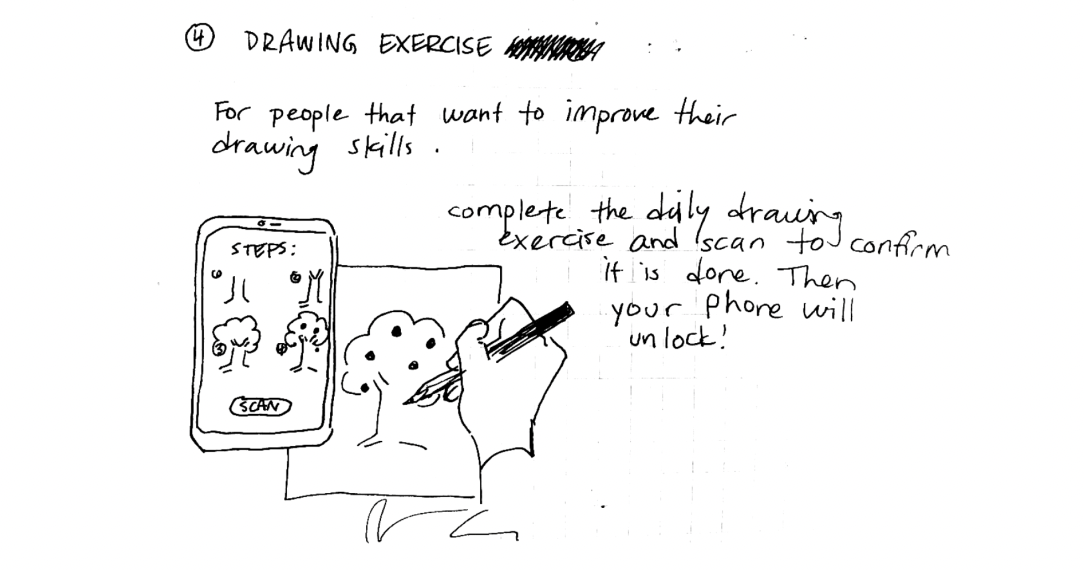 ④ DRAWING EXERCISE
For people that want to improve their
drawing skills.
complete the daily drawing
exercise and scan to confirm
it is done. Then
your phone will
unlock!
STEPS:
① ②
③ ④
SCAN